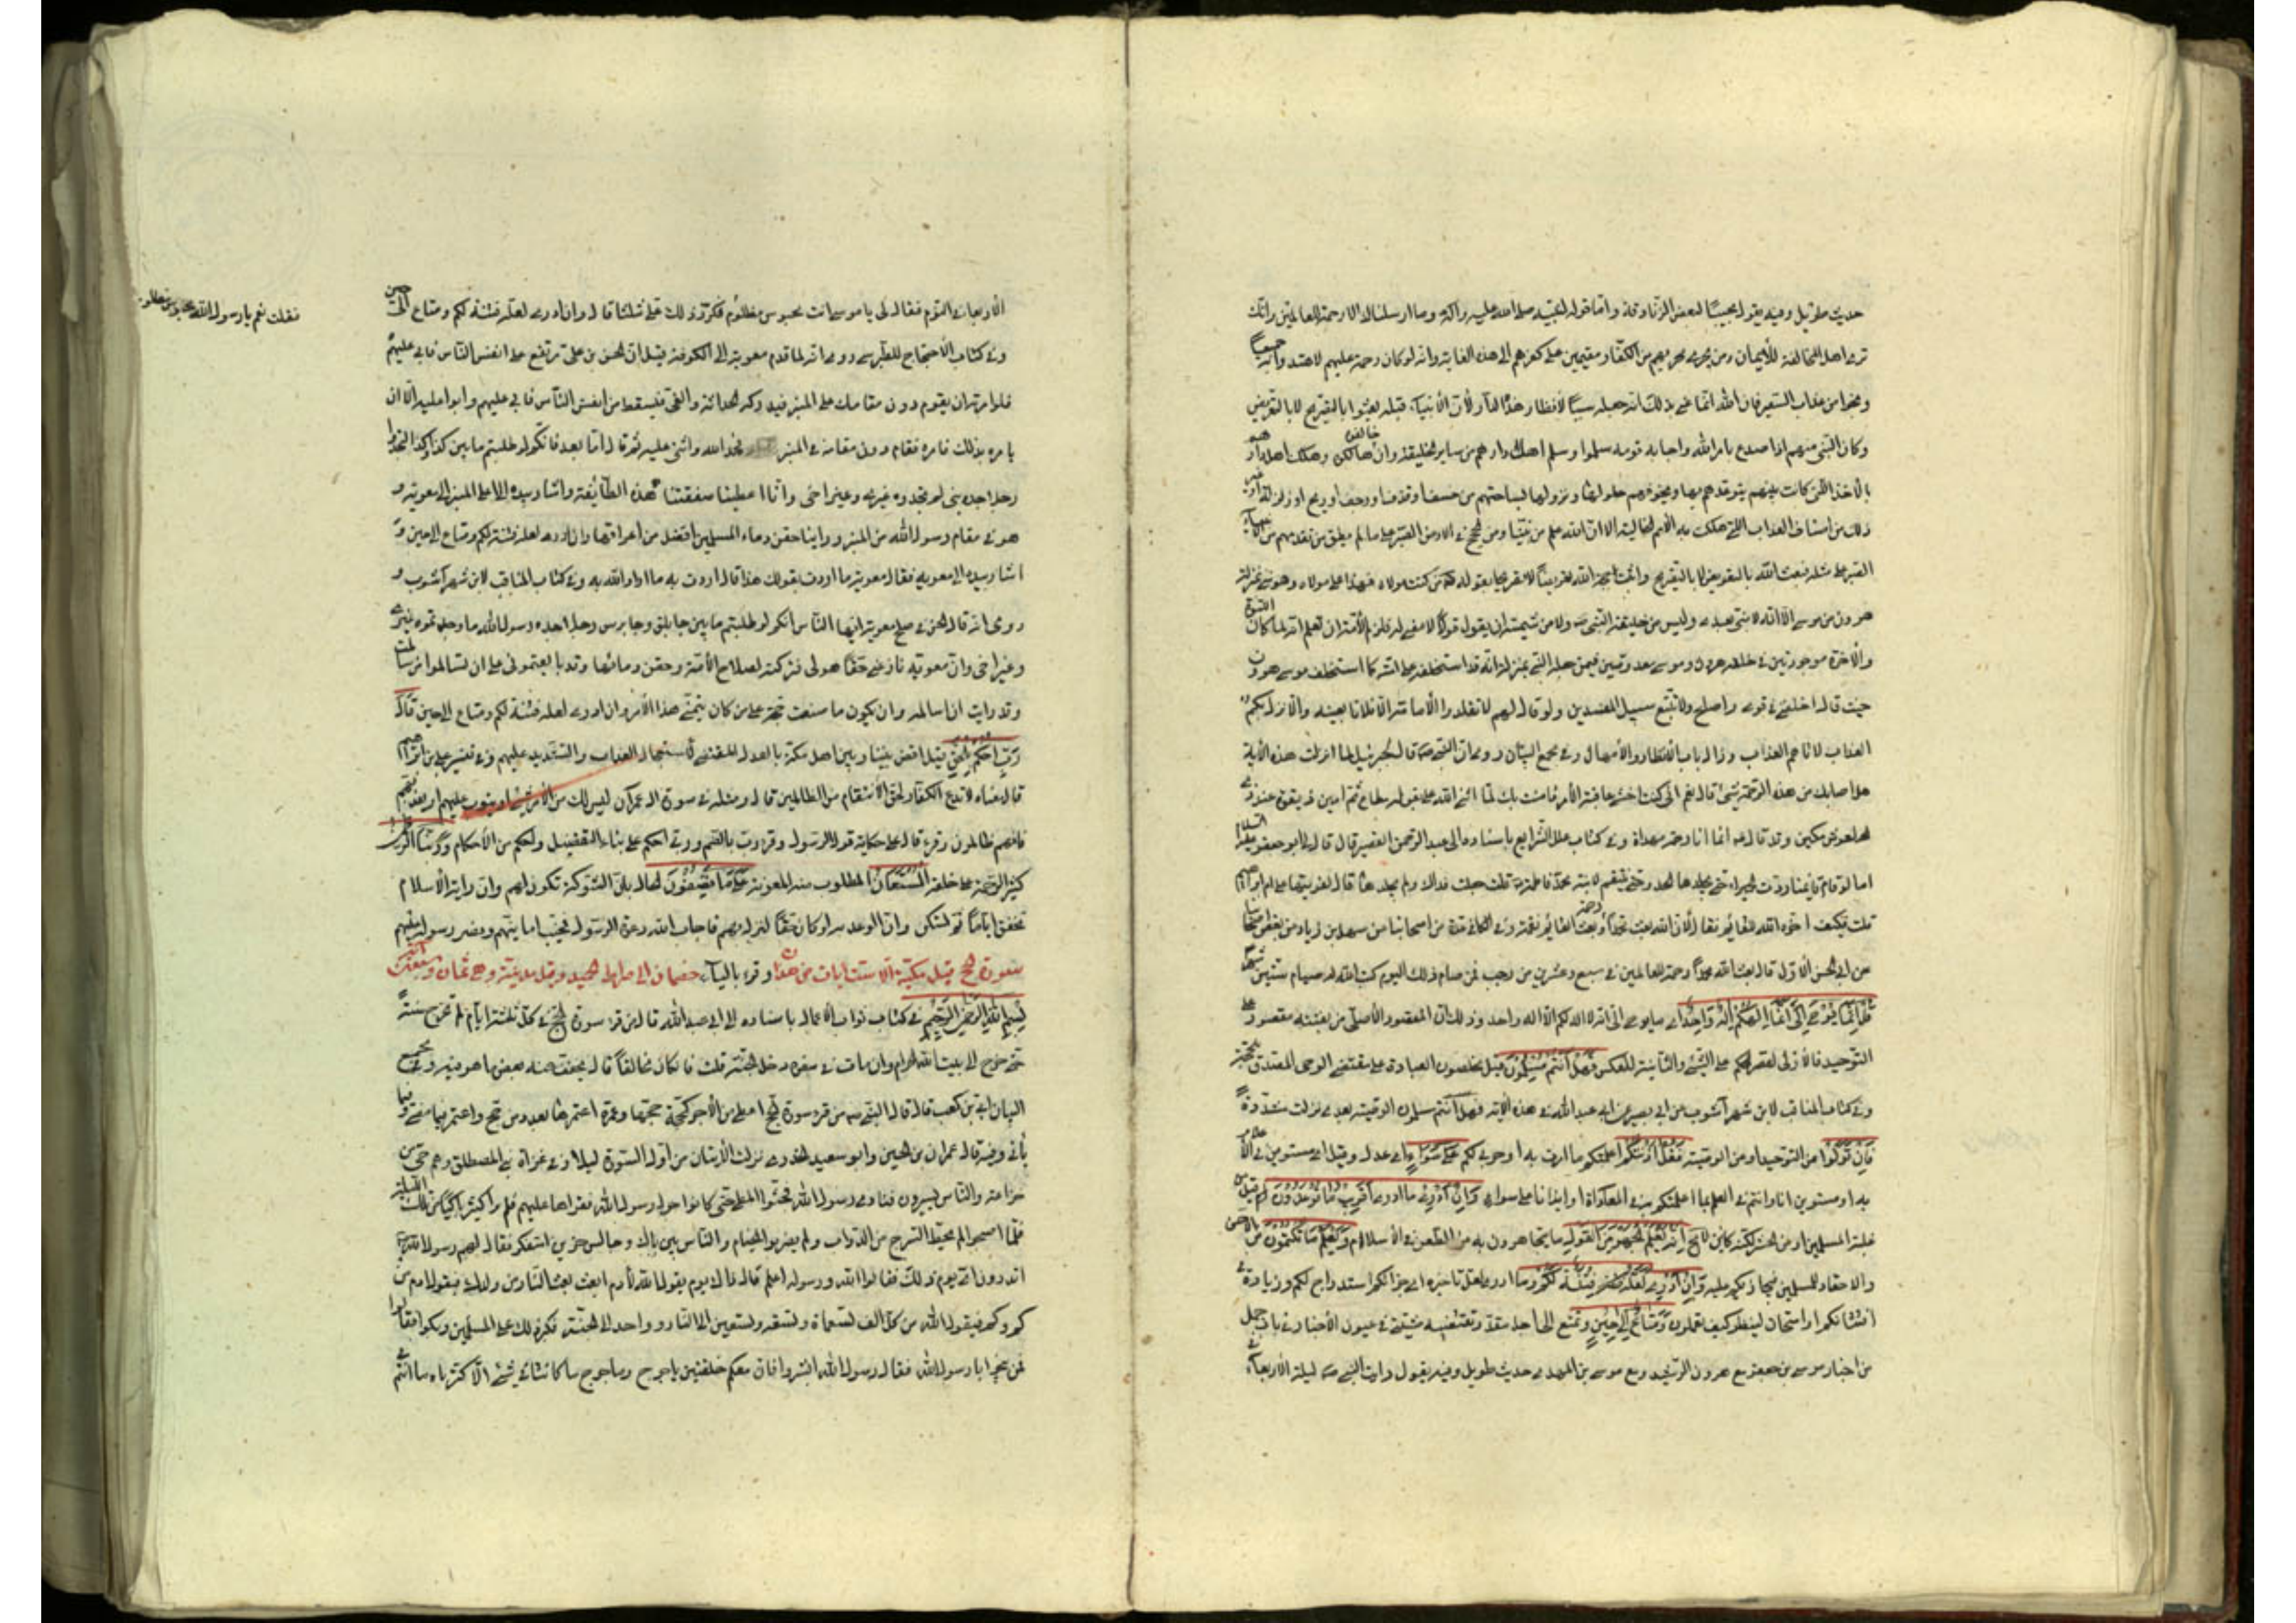 حديث طويل وفيه يقول مجيبًا لبعض الزنادقة وامّا قوله لنبيّه صلى الله عليه وآله وما ارسلناك الا رحمة للعالمين وانّك
ترى اهل المخالفة للأيمان ومن يجرى مجريهم من الكفّار مقيمين على كفرهم الى هذه الغاية وانه لو كان رحمة عليهم لاهتدوا جميعاً
ونجوا من عذاب السّعير فان الله انّما عنى بذلك انه جعله سبباً لأنظار هذه الدّار لأن الأنبياء قبله بعثوا بالتّصريح لا بالتّعريض
وكان النّبى منهم اذا صدع بامر الله واجابه قومه سلموا وسلم اهل دارهم من ساير الخليقة وان خالفوه هلكوا وهلك اهل دارهم
بالأفة الّتى كانت بينهم يتوعّدهم بها ويخوّفهم حلولها ونزولها بساحتهم من خسف او قذف او رجف او ريح او زلزلة او غير
ذلك من اصناف العذاب الّتى هلكت بها الأمم الخالية الا ان الله علم من نبيّنا ومن الحجج فى الأرض الصّبر على ما لم يطق من تقدّمهم من الأنبياء
الصّبر على مثله فبعث الله بالتّعريض لا بالتّصريح واثبت حجّة الله تعريضاً لا تصريحا بقوله فمن كنت مولاه فهذا على مولاه وهو منّى بمنزلة
هرون من موسى الّا انّه لا نبىّ بعدى وليس من خليقة النّبى ص ولا من شيمته ان يقول قولًا لا معنى له فلزم الأمّة ان تعلم انّه لمّا كان النبوّة
والأخوّة موجودتين فى خلقة هرون وموسى معدومتين فيمن جعله النّبى بمنزلته انّه قد استخلفه على امّته كما استخلف موسى هرون
حيث قال اخلفنى فى قومى واصلح ولا تتّبع سبيل المفسدين ولو قال لهم لا تقلّدوا الأمامة الّا فلانا بعينه والّا نزل بكم
العذاب لأتاهم العذاب وزال باب الأنظار والأمهال وفى مجمع البيان وروى ان النّبى ص قال لجبرئيل لما انزلت هذه الآية
هل اصابك من هذه الرّحمة شىء قال نعم انى كنت اخشى عاقبة الأمر فامنت بك لمّا اثنى الله علىّ بقوله مطاع ثمّ امين ذى قوّة عند ذى
العرش مكين وقد قال ع انما انا رحمة مهداة وفى كتاب علل الشرايع باسناده الى عبد الرّحمن القصير قال قال لى ابو جعفر عليه السلام
اما لو قام قائمنا ردّت الحميراء حتّى يجلدها الحد وحتّى ينتقم لابنة محمّد فاطمة منها قلت جعلت فداك ولم يجلدها قال لفريتها على ام ابراهيم
قلت فكيف اخّره الله للقائم فقال لأن الله بعث محمّداً رحمة وبعث القائم نقمة وفى الكافى عدة من اصحابنا عن سهل بن زياد عن بعض اصحابنا
عن ابى الحسن الأوّل قال بعث الله محمّداً رحمة للعالمين فى سبع وعشرين من رجب فمن صام ذلك اليوم كتب الله له صيام ستّين شهراً
قُلْ اِنَّمَا يُوحٰى اِلَىَّ اَنَّمَا اِلٰهُكُمْ اِلٰهٌ وَاحِدٌ اى ما يوحى الىّ انّه لا اله لكم الّا اله واحد وذلك لأن المقصود الأصلى من بعثته مقصور على
التوحيد فالأولى لقصر الحكم على الشىء والثّانية للعكس فَهَلْ اَنْتُمْ مُسْلِمُونَ قيل مخلصون العبادة على مقتضى الوحى المصدّق بالحجّة
وفى كتاب المناقب لابن شهر آشوب عن ابى بصير عن ابى عبد الله فى هذه الآية فهل انتم مسلمون الوصيّة بعدى نزلت مشدّدة
فَاِنْ تَوَلَّوْا من التّوحيد او من الوصيّة فَقُلْ اٰذَنْتُكُمْ اعلمتكم ما امرت به او حربى لكم عَلٰى سَوَاءٍ اى عدل وقيل اى مستوين فى الأعلام
به او مستوين انا وانتم فى العلم بما اعلمتكم به او فى المعاداة او ايذانا على سواء وَاِنْ اَدْرِى ما ادرى اَقَرِيبٌ مَا تُوعَدُونَ قيل من
غلبة المسلمين او من الحشر لكنّه كاين لا مح اِنَّهُ يَعْلَمُ الْجَهْرَ مِنَ الْقَوْلِ ما يجاهرون به من الطّعن فى الأسلام وَيَعْلَمُ مَا تَكْتُمُونَ من الأحن
والاحقاد للمسلمين فيجازيكم عليه وَاِنْ اَدْرِى لَعَلَّهُ فِتْنَةٌ لَكُمْ وما ادرى لعل تأخيره اى جزائكم استدراج لكم وزيادة فى
افتتانكم او امتحان لينظر كيف تعملون وَمَتَاعٌ اِلٰى حِينٍ وتمتّع الى اجل مقدّر تقتضيه مشيّته فى عيون الأخبار فى باب جمل
من اخبار موسى بن جعفر مع هرون الرّشيد ومع موسى بن المهدى حديث طويل وفيه يقول رايت النبى ص ليلة الأربعاء فى
الأربعا فى النّوم فقال لى يا موسى انت محبوس مظلوم فكرّر ذلك علىّ ثلثا قال وان ادرى لعلّه فتنة لكم ومتاع الى حين
فقلت نعم يا رسول الله محبوس مظلوم
وفى كتاب الأحتجاج للطبرسى وروى انّه لما قدم معوية الى الكوفة قيل ان الحسن بن على مرتفع فى انفس النّاس فابى عليهم
فلو امرته ان يقوم دون مقامك على المنبر فيدركه الحداثة والعىّ فيسقط من انفس النّاس فابى عليهم وابوا عليه الّا ان
يامره بذلك فامره فقام دون مقامه فى المنبر فحمد الله واثنى عليه ثم قال امّا بعد فانكم لو طلبتم ما بين كذا وكذا لتجدوا
رجلا جده نبى لم تجدوه غيرى وغير اخى وانّا اعطينا صفقتنا هذه الطّاغية واشار بيده الى اعلى المنبر الى معوية و
هو فى مقام رسول الله من المنبر وراينا حقن دماء المسلمين افضل من اهراقها وان ادرى لعله فتنة لكم ومتاع الى حين و
اشار بيده الى معوية فقال معوية ما اردت بقولك هذا قال اردت به ما اراد الله به وفى كتاب المناقب لابن شهر آشوب و
روى انه قال الحسن فى صلح معوية ايها النّاس انكم لو طلبتم ما بين جابلق وجابرس رجلا جده رسول الله ما وجدتموه غيرى
وغير اخى وان معوية نازعنى حقّا هو لى فتركته لصلاح الأمّة وحقن دمائها وقد بايعتمونى على ان تسالموا من سالمت
وقد رايت ان اسالمه وان يكون ما صنعت حجّة على من كان يتمنّى هذا الأمر وان ادرى لعله فتنة لكم ومتاع الى حين قَالَ
رَبِّ احْكُمْ بِالْحَقِّ قيل اقض بيننا وبين اهل مكّة بالعدل المقتضى لأستعجال العذاب والتشديد عليهم وفى تفسير على بن ابراهيم
قال معناه لا تدع الكفّار لحق الأنتقام من الظالمين قال ومثله فى سورة آل عمران ليس لك من الأمر شىء او يتوب عليهم او يعذّبهم
فانّهم ظالمون وقرء قال على حكاية قول الرسول وقرء ربّ بالضم وربّى احكم على بناء التّفضيل واحكم من الأحكام وَرَبُّنَا الرَّحْمٰنُ
كثير الرّحمة على خلقه الْمُسْتَعَانُ المطلوب منه المعونة عَلٰى مَا تَصِفُونَ الحال بان الشّوكة تكون لهم وان راية الأسلام
تخفق ايّاماً ثم تسكن وان الموعد به لو كان حقّا لنزل بهم فاجاب الله دعوة الرّسول فخيّب امانيّهم ونصر رسوله عليهم
سورة الحج قيل مكّية الّا ستّ ايات من هذان وقرء بالياء خصمان الى صراط الحميد وقيل مدنيّة وهى ثمان وسبعون آية
بِسْمِ اللهِ الرَّحْمٰنِ الرَّحِيمِ فى كتاب ثواب الأعمال باسناده الى ابى عبد الله قال من قرء سورة الحج فى كل ثلثة ايّام لم تخرج سنته
حتّى يخرج الى بيت الله الحرام وان مات فى سفره دخل الجنّة قلت فان كان مخالفاً قال يخفّف عنه بعض ما هو فيه وفى مجمع
البيان ابىّ بن كعب قال قال النبى ص من قرء سورة الحج اعطى من الأجر كحجّة حجّها وعمرة اعتمرها بعدد من حج واعتمر فيما مضى وفيما
بقى وفيه قال عمران بن الحصين وابو سعيد الخدرى نزلت الأيتان من اول السّورة ليلا فى غزاة بنى المصطلق وهم حى من
خزاعة والنّاس يسيرون فنادى رسول الله فحثّوا المطىّ حتى كانوا حول رسول الله فقراها عليهم فلم ير اكثر باكياً من تلك اللّيلة
فلمّا اصبحوا لم يحطّوا السّرج من الدّواب ولم يضربوا الخيام والنّاس بين باك وجالس حزين متفكر فقال لهم رسول الله
اتدرون اىّ يوم ذلك فقالوا الله ورسوله اعلم قال ذاك يوم يقول الله لأدم ابعث بعث النّار من ولدك فيقول ادم من
كم وكم فيقول الله من كل الف تسعمأة وتسعة وتسعين الى النّار وواحد الى الجنّة فكبر ذلك على المسلمين وبكوا فقالوا
فمن ينجو يا رسول الله فقال رسول الله ابشروا فان معكم خليقتين ياجوج وماجوج ما كانتا فى شىء الّا كثرتاه ما انتم فى